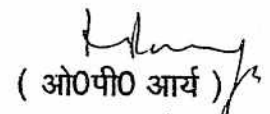 ( ओ0पी0 आर्य )